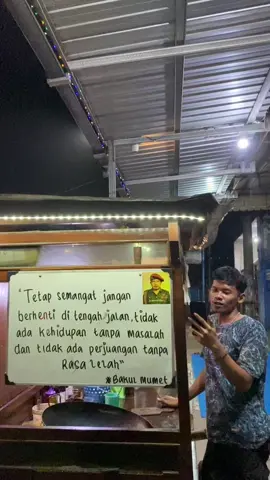 "Tetap semangat jangan
berhenti di tengah jalan, tidak
ada kehidupan tanpa masalah
dan tidak ada perjuangan tanpa
Rasa lelah"
#Bakul Mumet